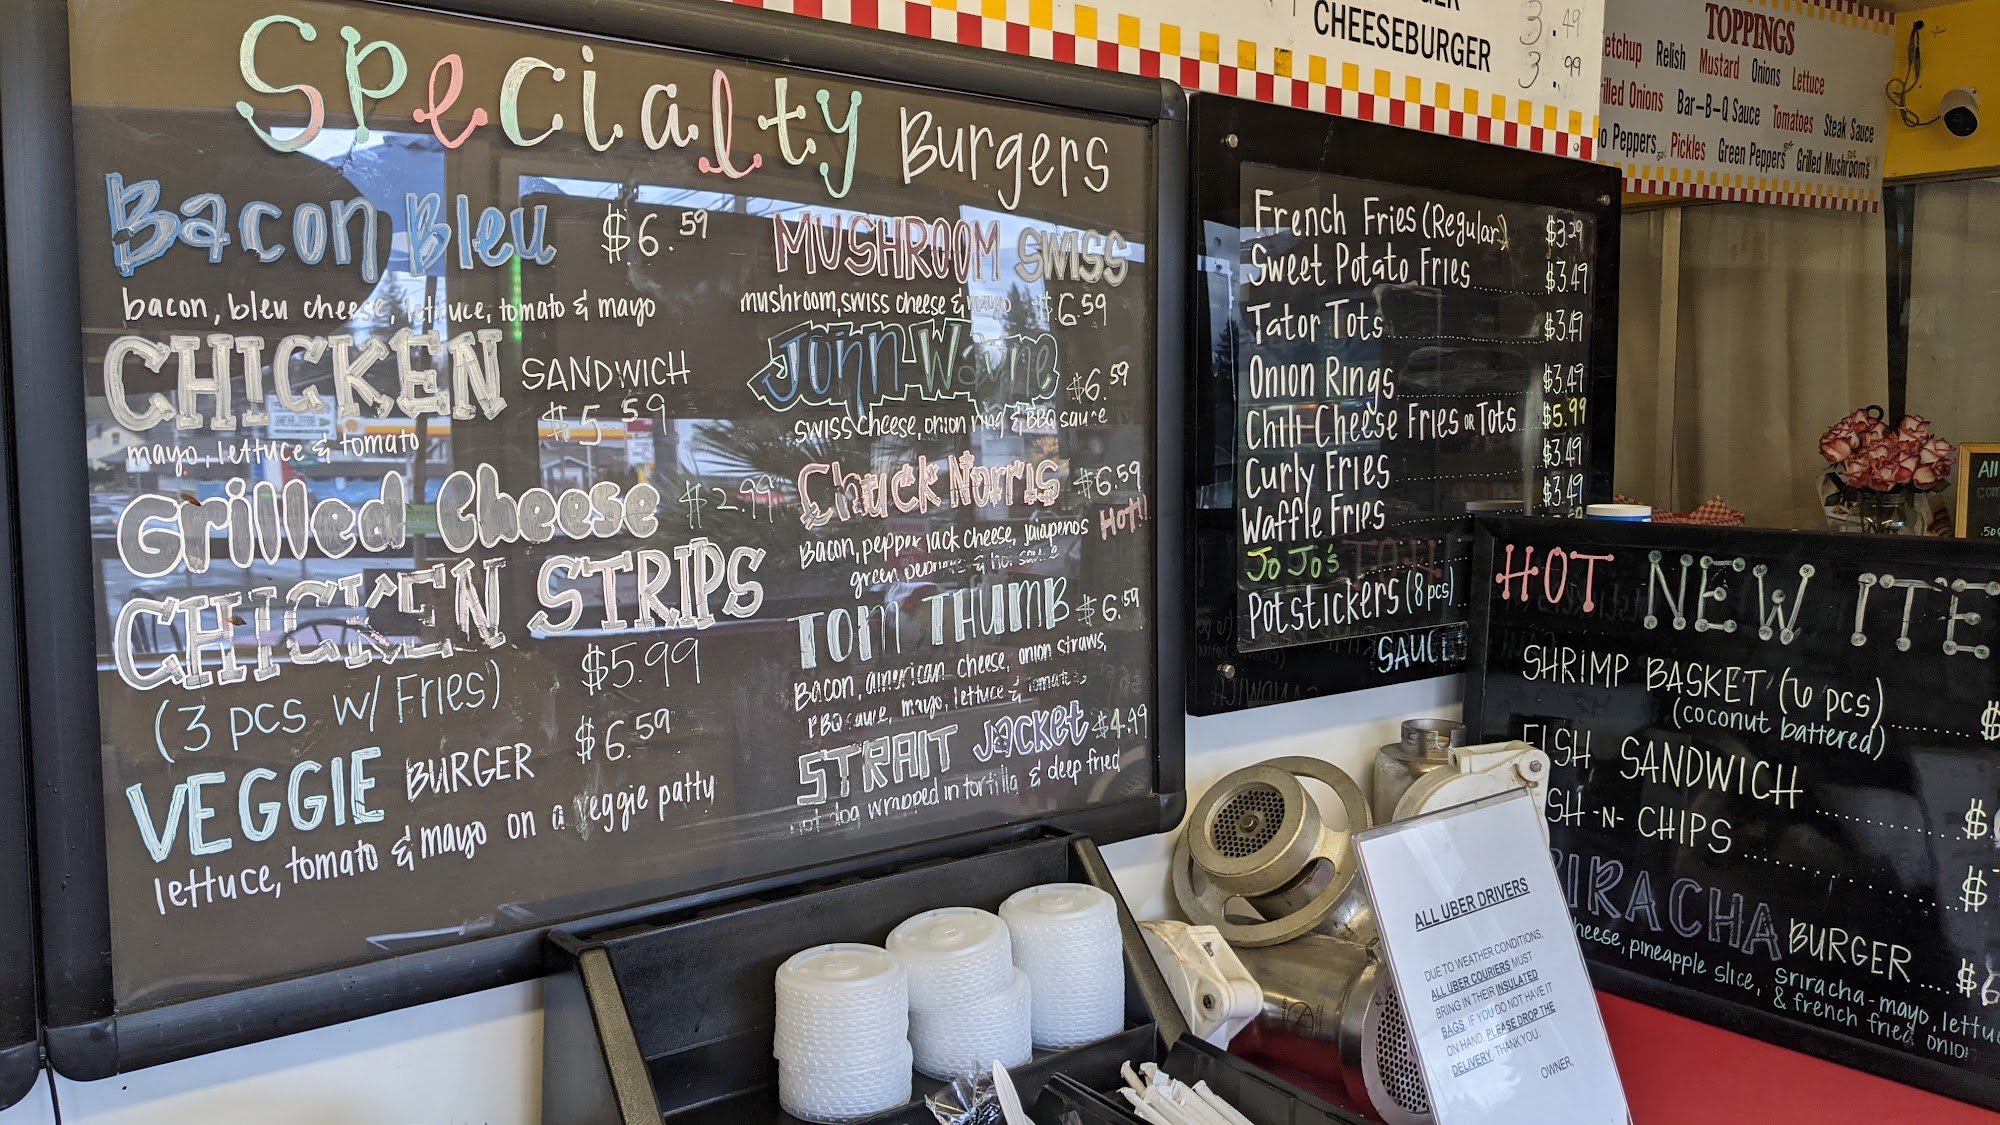 Specialty Burgers
Bacon Bleu $6.59
bacon, bleu cheese, lettuce, tomato & mayo
CHICKEN SANDWICH
$5.59
mayo, lettuce & tomato
Grilled Cheese $2.99
CHICKEN STRIPS
(3 pcs w/ Fries) $5.99
VEGGIE BURGER $6.59
lettuce, tomato & mayo on a veggie patty
MUSHROOM SWISS
mushroom, swiss cheese & mayo $6.59
John Wayne $6.59
swiss cheese, onion ring & BBQ sauce
Chuck Norris $6.59
Bacon, pepper jack cheese, jalapenos HOT!!
green peppers & hot sauce
TOM THUMB $6.59
Bacon, american cheese, onion straws,
BBQ sauce, mayo, lettuce & tomatoes
STRAIT JACKET $4.49
hot dog wrapped in tortilla & deep fried
3.49
CHEESEBURGER 3.99
TOPPINGS
Relish Mustard Onions Lettuce
Onions Bar-B-Q Sauce Tomatoes Steak Sauce
Peppers Pickles Green Peppers Grilled Mushrooms
French Fries (Regular) $3.29
Sweet Potato Fries $3.49
Tator Tots $3.49
Onion Rings $3.49
Chili Cheese Fries or Tots $5.99
Curly Fries $3.49
Waffle Fries $3.49
Jo Jo's
Potstickers (8 pcs)
SAUCE
All
HOT NEW ITE
SHRIMP BASKET (6 pcs) $
(coconut battered)
FISH SANDWICH $
CHIPS $
BURGER $6
pineapple slice, sriracha-mayo,
& french fried onion
ALL UBER DRIVERS
DUE TO WEATHER CONDITIONS,
ALL UBER COURIERS MUST
BRING IN THEIR INSULATED
BAGS. IF YOU DO NOT HAVE IT
ON HAND, PLEASE DROP THE
DELIVERY. THANK YOU.
OWNER,